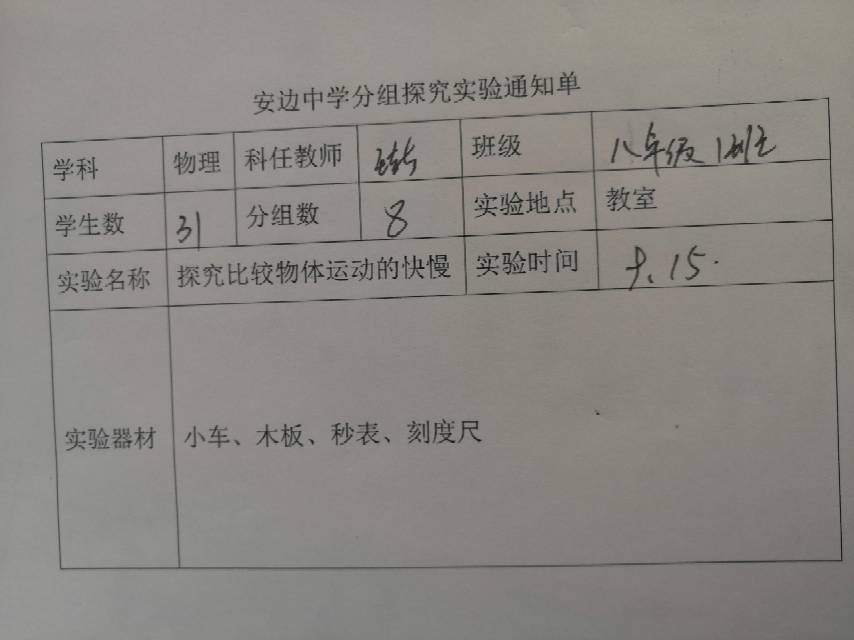 安边中学分组探究实验通知单
学科 物理 科任教师 班级 八年级1班
学生数 31 分组数 8 实验地点 教室
实验名称 探究比较物体运动的快慢 实验时间 9.15.
实验器材 小车、木板、秒表、刻度尺